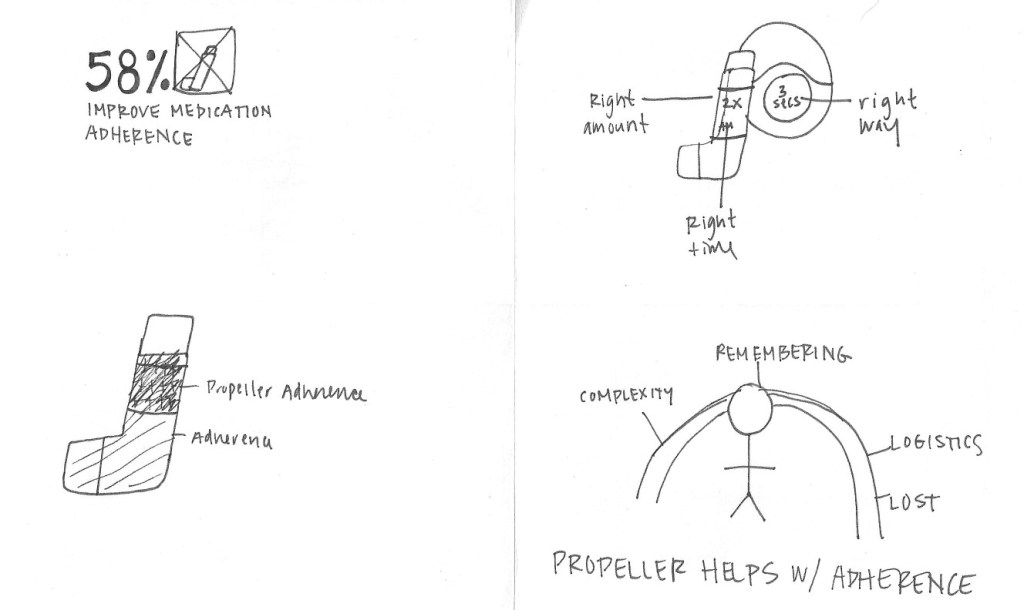 58%
IMPROVE MEDICATION
ADHERENCE
Right
amount
2X
AM
3
secs
right
way
Right
time
Propeller Adherence
Adherence
REMEMBERING
COMPLEXITY
LOGISTICS
LOST
PROPELLER HELPS W/ ADHERENCE